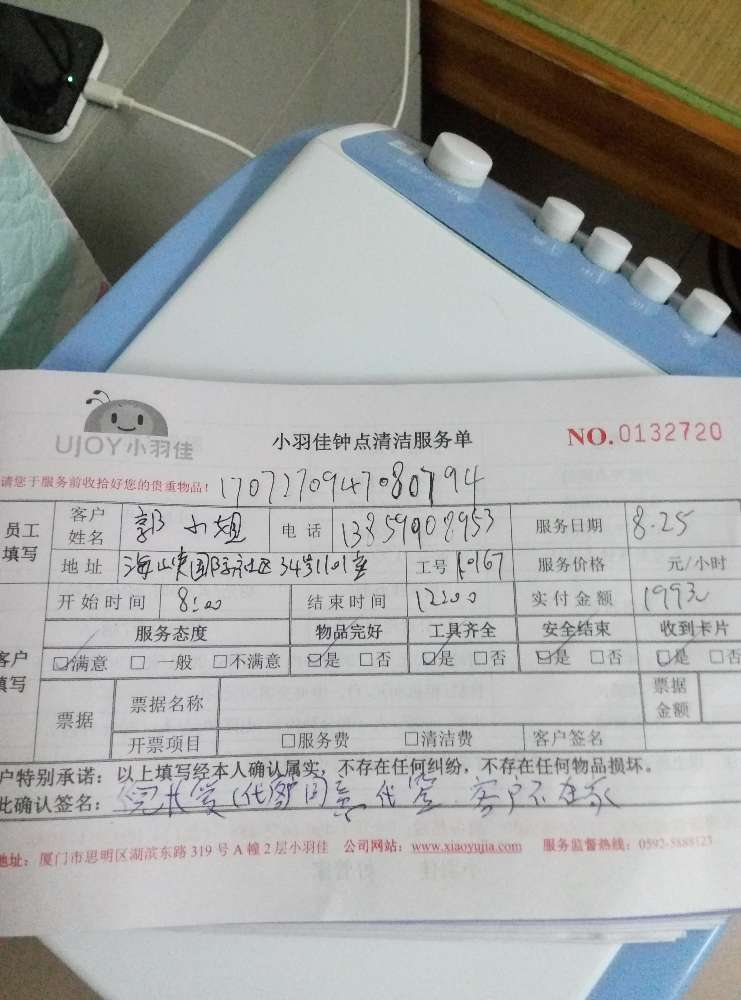 UJOY小羽佳
小羽佳钟点清洁服务单 NO.0132720
请您于服务前收拾好您的贵重物品! 1707270947080794
员工填写 客户姓名 郭小姐 电话 13859908953 服务日期 8.25
地址 国际社区34号1101室 工号 10167 服务价格 元/小时
开始时间 8:00 结束时间 12:00 实付金额
服务态度 物品完好 工具齐全 安全结束 收到卡片
客户填写 ☑满意 □一般 □不满意 ☑是 □否 ☑是 □否 ☑是 □否 ☑是 □否
票据 票据名称 票据金额
开票项目 □服务费 □清洁费 客户签名
户特别承诺:以上填写经本人确认属实,不存在任何纠纷,不存在任何物品损坏。
此确认签名: 代签 客户不在家
地址:厦门市思明区湖滨东路319号A幢2层小羽佳 公司网站:www.xiaoyujia.com 服务监督热线:0592-5888123